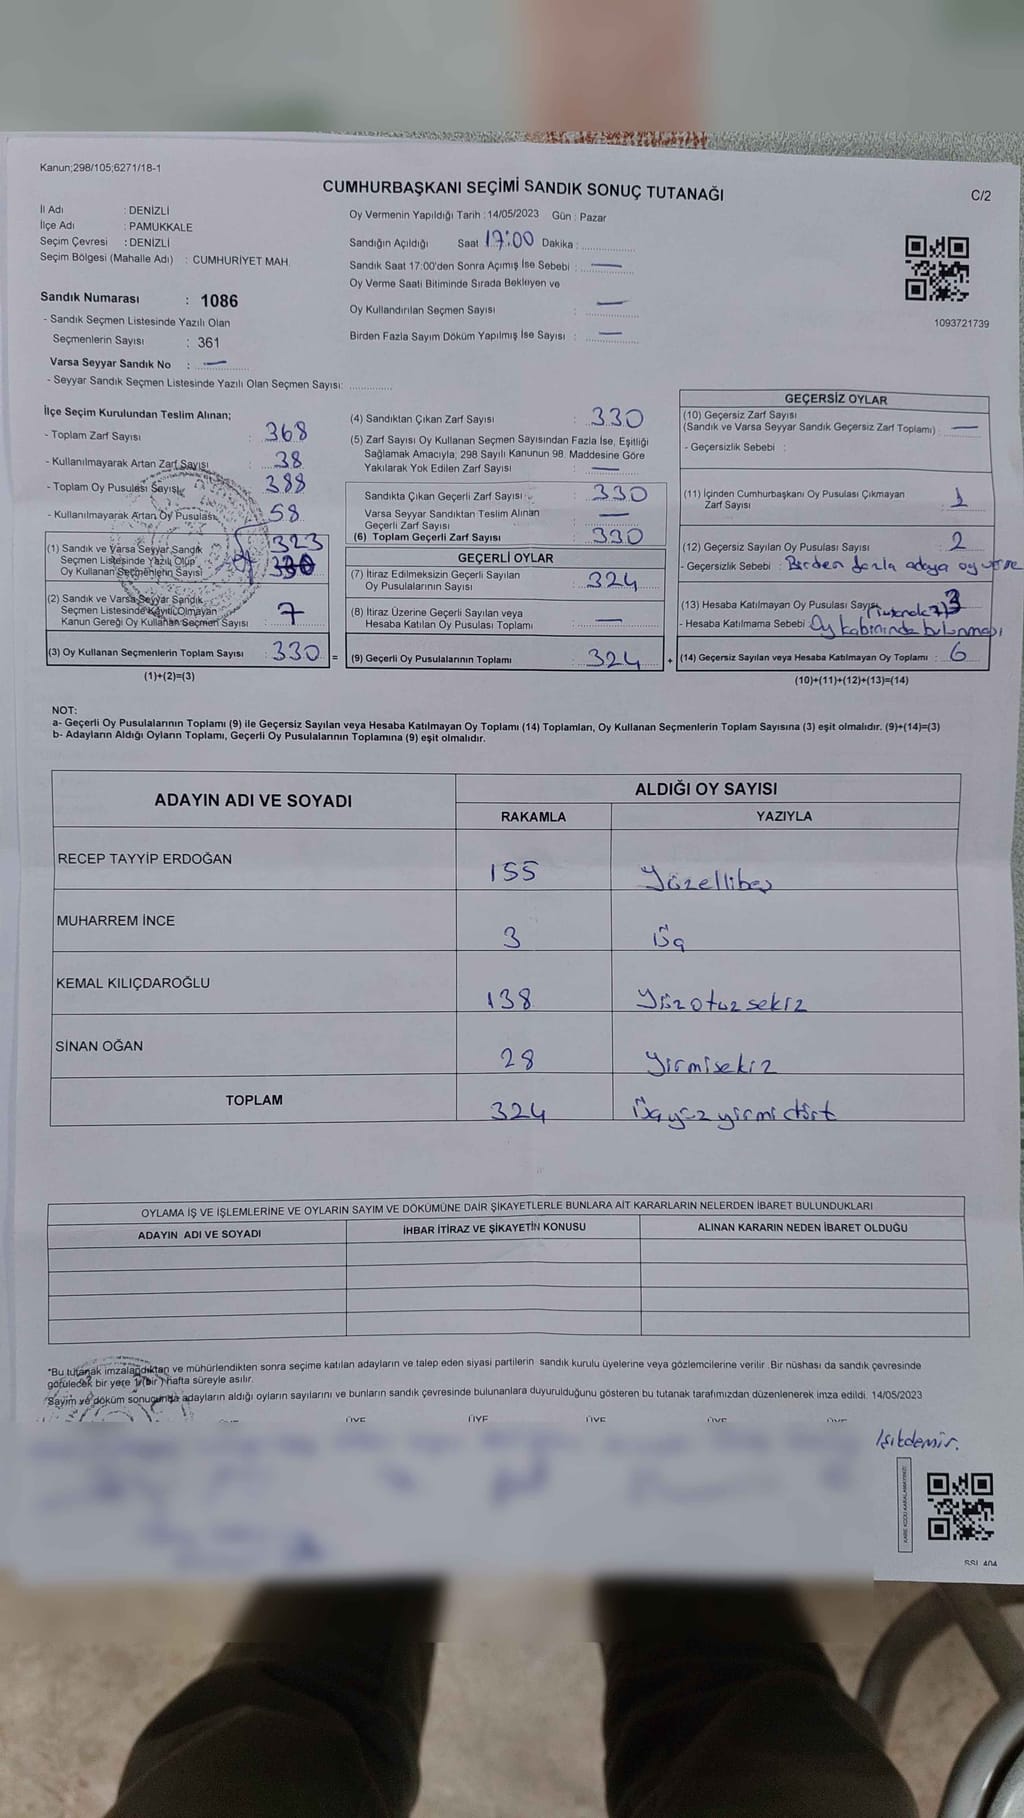 Kanun;298/105;6271/18-1
CUMHURBAŞKANI SEÇİMİ SANDIK SONUÇ TUTANAĞI
C/2
İl Adı : DENİZLİ
İlçe Adı : PAMUKKALE
Seçim Çevresi : DENİZLİ
Seçim Bölgesi (Mahalle Adı) : CUMHURİYET MAH.
Oy Vermenin Yapıldığı Tarih : 14/05/2023 Gün : Pazar
Sandığın Açıldığı Saat 17:00 Dakika :
Sandık Saat 17:00'den Sonra Açımış İse Sebebi : —
Oy Verme Saati Bitiminde Sırada Bekleyen ve
Oy Kullandırılan Seçmen Sayısı : —
Birden Fazla Sayım Döküm Yapılmış İse Sayısı : —
1093721739
Sandık Numarası : 1086
- Sandık Seçmen Listesinde Yazılı Olan
Seçmenlerin Sayısı : 361
Varsa Seyyar Sandık No : —
- Seyyar Sandık Seçmen Listesinde Yazılı Olan Seçmen Sayısı:
İlçe Seçim Kurulundan Teslim Alınan;
- Toplam Zarf Sayısı : 368
- Kullanılmayarak Artan Zarf Sayısı : 38
- Toplam Oy Pusulası Sayısı : 388
- Kullanılmayarak Artan Oy Pusulası 58
(1) Sandık ve Varsa Seyyar Sandık
Seçmen Listesinde Yazılı Olup
Oy Kullanan Seçmenlerin Sayısı
323
(2) Sandık ve Varsa Seyyar Sandık
Seçmen Listesinde Kayıtlı Olmayan
Kanun Gereği Oy Kullanan Seçmen Sayısı : 7
(3) Oy Kullanan Seçmenlerin Toplam Sayısı : 330 =
(1)+(2)=(3)
(4) Sandıktan Çıkan Zarf Sayısı : 330
(5) Zarf Sayısı Oy Kullanan Seçmen Sayısından Fazla İse, Eşitliği
Sağlamak Amacıyla; 298 Sayılı Kanunun 98. Maddesine Göre
Yakılarak Yok Edilen Zarf Sayısı : —
Sandıkta Çıkan Geçerli Zarf Sayısı : 330
Varsa Seyyar Sandıktan Teslim Alınan
Geçerli Zarf Sayısı : —
(6) Toplam Geçerli Zarf Sayısı : 330
GEÇERLİ OYLAR
(7) İtiraz Edilmeksizin Geçerli Sayılan
Oy Pusulalarının Sayısı : 324
(8) İtiraz Üzerine Geçerli Sayılan veya
Hesaba Katılan Oy Pusulası Toplamı : —
(9) Geçerli Oy Pusulalarının Toplamı : 324 +
GEÇERSİZ OYLAR
(10) Geçersiz Zarf Sayısı
(Sandık ve Varsa Seyyar Sandık Geçersiz Zarf Toplamı) : —
- Geçersizlik Sebebi :
(11) İçinden Cumhurbaşkanı Oy Pusulası Çıkmayan
Zarf Sayısı : 1
(12) Geçersiz Sayılan Oy Pusulası Sayısı : 2
- Geçersizlik Sebebi : Birden fazla adaya oy verme
(13) Hesaba Katılmayan Oy Pusulası Sayısı 3
- Hesaba Katılmama Sebebi : Oy kabininde bulunması
(14) Geçersiz Sayılan veya Hesaba Katılmayan Oy Toplamı : 6
(10)+(11)+(12)+(13)=(14)
NOT:
a- Geçerli Oy Pusulalarının Toplamı (9) ile Geçersiz Sayılan veya Hesaba Katılmayan Oy Toplamı (14) Toplamları, Oy Kullanan Seçmenlerin Toplam Sayısına (3) eşit olmalıdır. (9)+(14)=(3)
b- Adayların Aldığı Oyların Toplamı, Geçerli Oy Pusulalarının Toplamına (9) eşit olmalıdır.
ADAYIN ADI VE SOYADI
ALDIĞI OY SAYISI
RAKAMLA YAZIYLA
RECEP TAYYİP ERDOĞAN 155 Yüzellibeş
MUHARREM İNCE 3 Üç
KEMAL KILIÇDAROĞLU 138 Yüzotuzsekiz
SİNAN OĞAN 28 Yirmisekiz
TOPLAM 324 Üçyüzyirmidört
OYLAMA İŞ VE İŞLEMLERİNE VE OYLARIN SAYIM VE DÖKÜMÜNE DAİR ŞİKAYETLERLE BUNLARA AİT KARARLARIN NELERDEN İBARET BULUNDUKLARI
ADAYIN ADI VE SOYADI İHBAR İTİRAZ VE ŞİKAYETİN KONUSU ALINAN KARARIN NEDEN İBARET OLDUĞU
*Bu tutanak imzalandıktan ve mühürlendikten sonra seçime katılan adayların ve talep eden siyasi partilerin sandık kurulu üyelerine veya gözlemcilerine verilir. Bir nüshası da sandık çevresinde
görülecek bir yere 1 (bir) hafta süreyle asılır.
*Sayım ve döküm sonucunda adayların aldığı oyların sayılarını ve bunların sandık çevresinde bulunanlara duyurulduğunu gösteren bu tutanak tarafımızdan düzenlenerek imza edildi. 14/05/2023
ÜYE ÜYE ÜYE ÜYE ÜYE
Işıkdemir.
KARE KODU KARALAMAYINIZ!
SSL 404